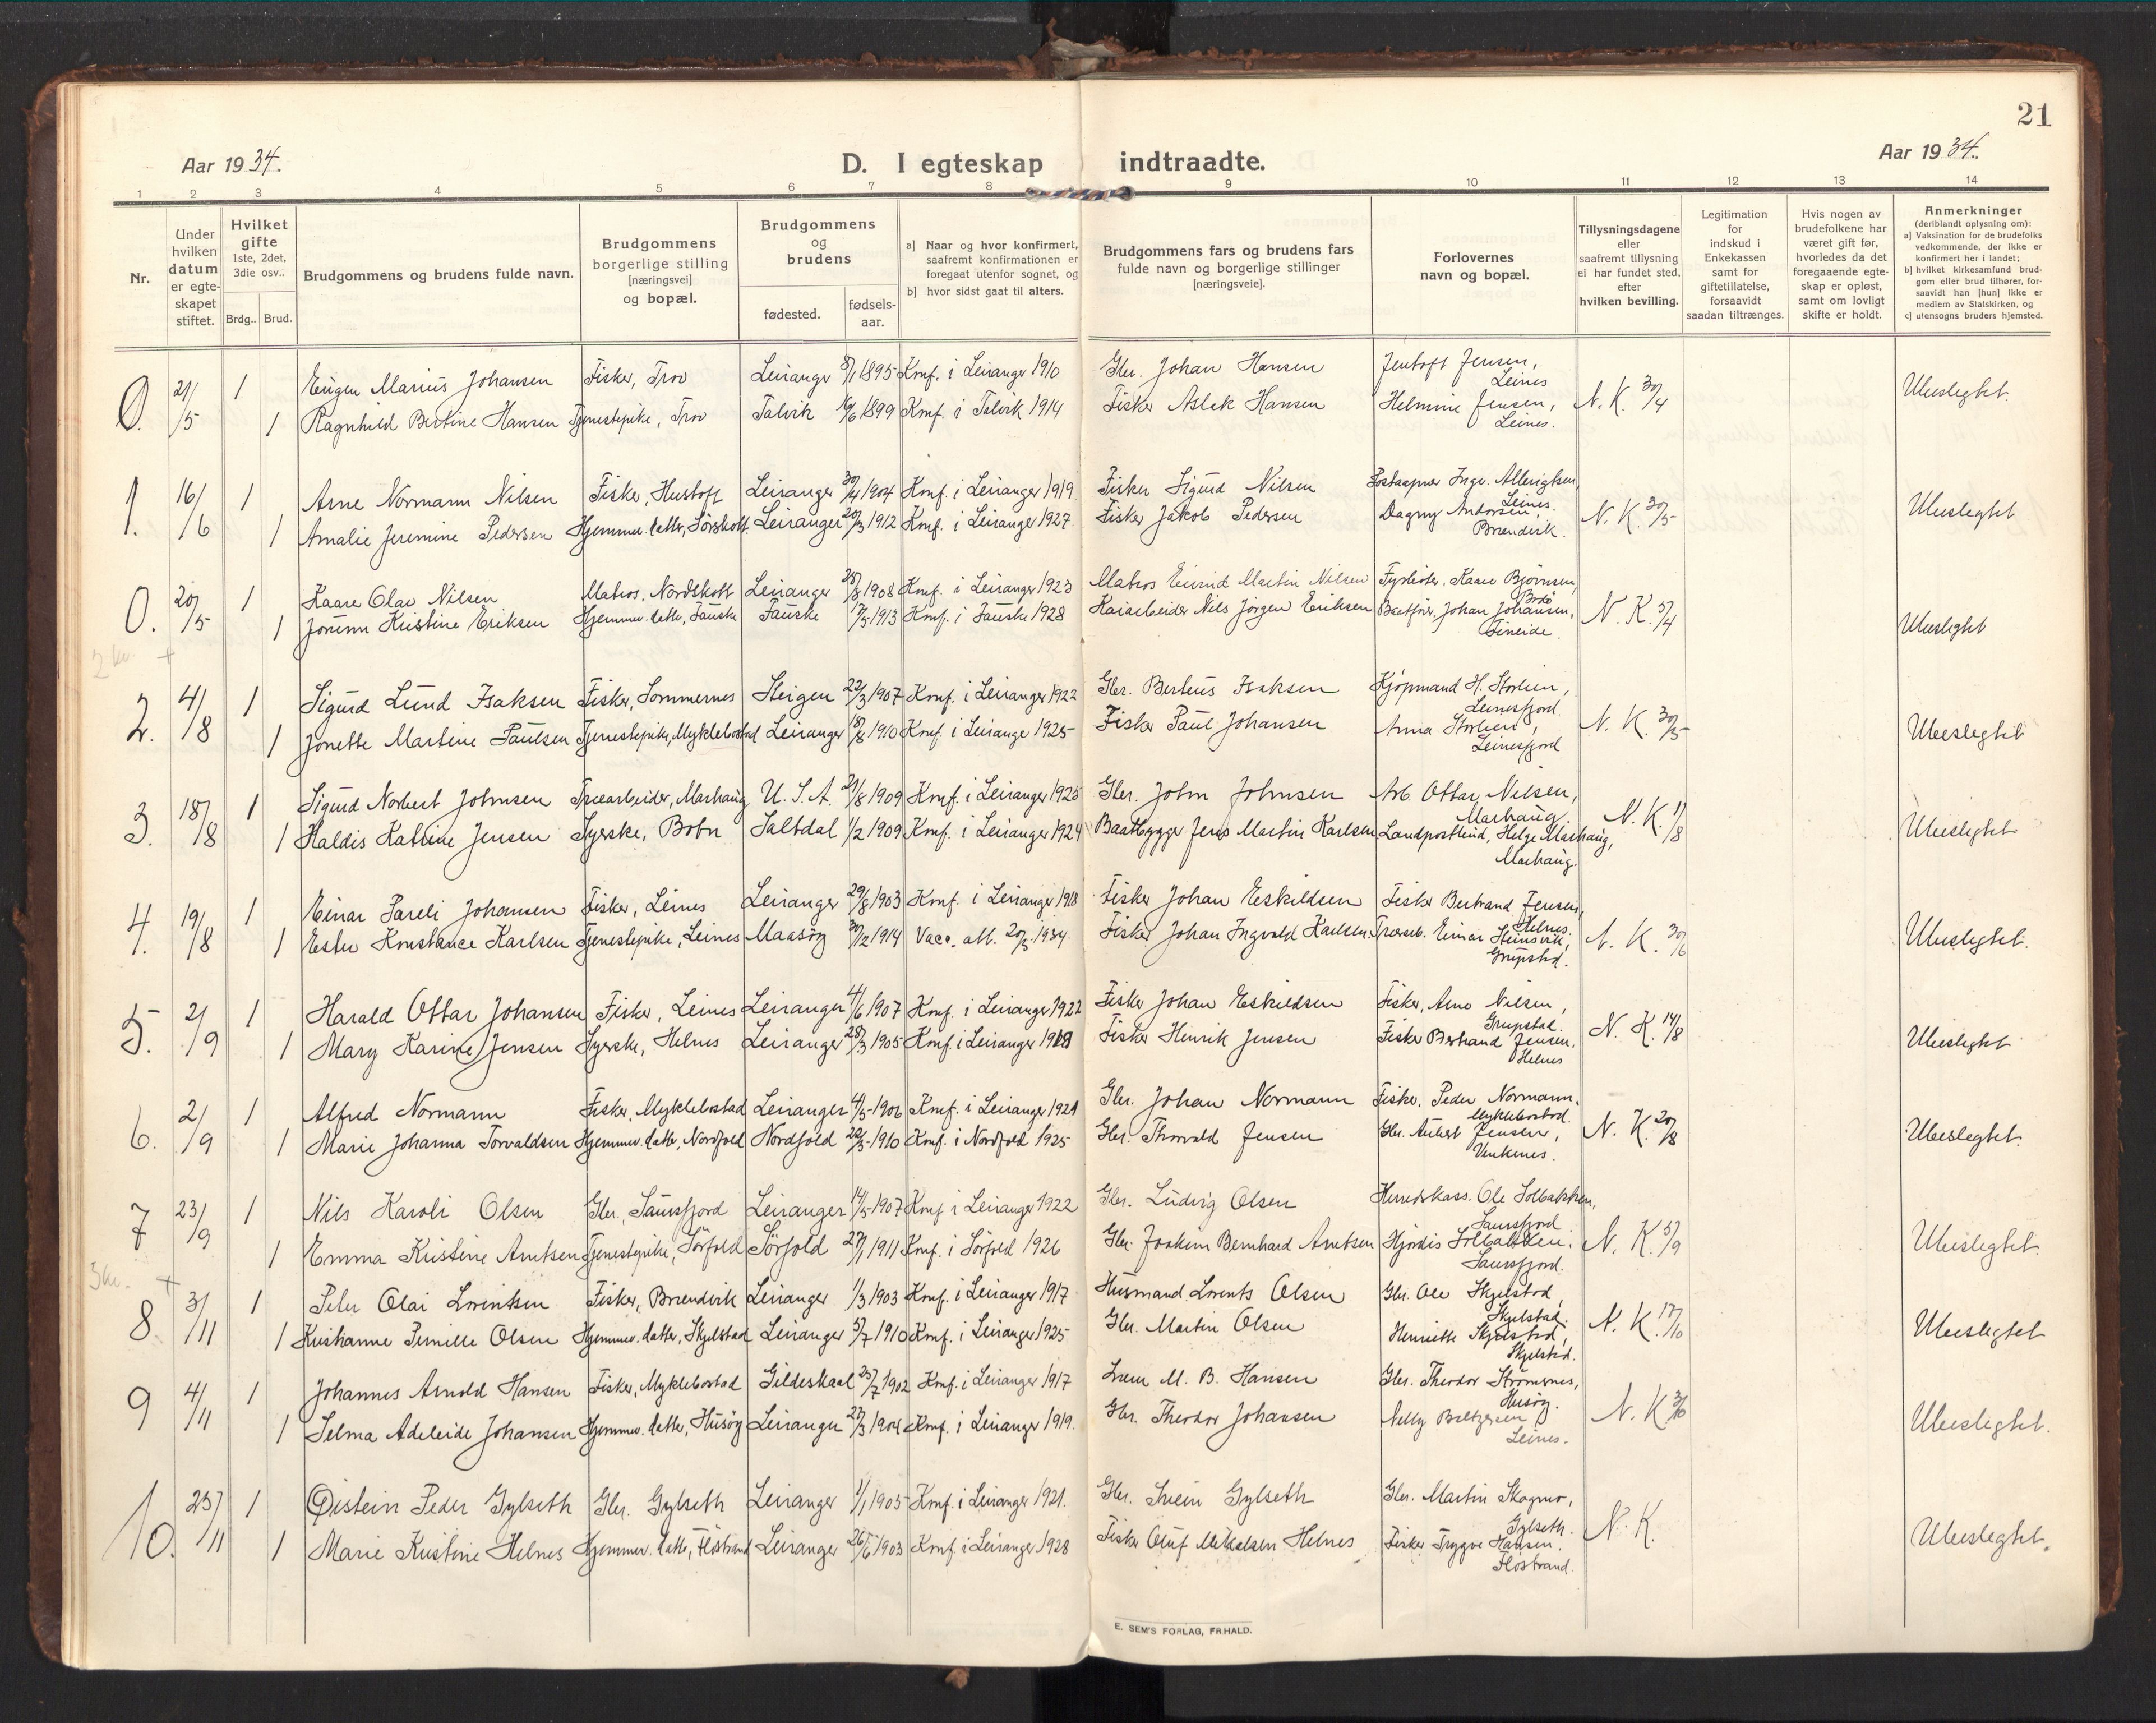 21
Aar 1934.
D. I egteskap indtraadte.
Aar 1934.
1 2 3 4 5 6 7 8 9 10 11 12 13 14
Nr.
Under hvilken datum er egteskapet stiftet.
Hvilket gifte 1ste, 2det, 3die osv..
Brdg.. Brud.
Brudgommens og brudens fulde navn.
Brudgommens borgerlige stilling [næringsvei] og bopæl.
Brudgommens og brudens
fødested. fødsels-aar.
a] Naar og hvor konfirmert, saafremt konfirmationen er foregaat utenfor sognet, og
b] hvor sidst gaat til alters.
Brudgommens fars og brudens fars fulde navn og borgerlige stillinger [næringsveie].
Forlovernes navn og bopæl.
Tillysningsdagene eller saafremt tillysning ei har fundet sted, efter hvilken bevilling.
Legitimation for indskud i Enkekassen samt for giftetillatelse, forsaavidt saadan tiltrænges.
Hvis nogen av brudefolkene har været gift før, hvorledes da det foregaaende egteskap er opløst, samt om lovligt skifte er holdt.
Anmerkninger (deriblandt oplysning om):
a] Vaksination for de brudefolks vedkommende, der ikke er konfirmert her i landet;
b] hvilket kirkesamfund brudgom eller brud tilhører, forsaavidt han [hun] ikke er medlem av Statskirken, og
c] utensogns bruders hjemsted.
0. 21/5 1 Eugen Marius Johansen Fisker, Trov Leiranger 8/1 1895 Konf. i Leiranger 1910 Gbr. Johan Hansen Jentoft Jensen, Leines N. K. 30/4 Ubeslegtet.
1 Ragnhild Bertine Hansen Tjenestepike, Trov Talvik 16/6 1899 Konf. i Talvik 1914 Fisker Aslak Hansen Helmine Jensen, Leines.
1. 16/6 1 Arne Normann Nilsen Fisker, Hustoft Leiranger 30/4 1904 Konf. i Leiranger 1919 Fisker Sigurd Nilsen Leines. N. K. 30/5 Ubeslegtet
1 Amalie Jeremine Pedersen Hjemmev. datter, Sørskott. Leiranger 20/3 1912 Konf. i Leiranger 1927. Fisker Jakob Pedersen Dagny Andorsen, Brændvik.
0. 20/5 1 Kaare Olav Nilsen Matros, Nordskott Leiranger 28/8 1908 Konf. i Leiranger 1923 Matros Eivind Martin Nilsen Fyrbøter, Kaare Bjørnsen, Bodø N. K. 5/4 Ubeslegtet
1 Jorunn Kristine Eriksen Hjemmev. datter, Fauske Fauske 17/5 1913 Konf. i Fauske 1928 Kaiarbeider Nils Jörgen Eriksen Baatfører, Johan Johansen, Fineide.
2. 4/8 1 Sigurd Lund Isaksen Fisker, Sommernes Steigen 22/3 1907 Konf. i Leiranger 1922 Gbr. Berteus Isaksen Kjøpmand H. Storlien, Leinesfjord. N. K. 30/5 Ubeslegtet
1 Jonette Martine Paulsen Tjenestepike, Myklebostad Leiranger 18/8 1910 Konf. i Leiranger 1925 Fisker Paul Johansen Anna Storlien, Leinesfjord
3. 18/8 1 Sigurd Norbert Johnsen Træarbeider, Marhaug U. S. A. 21/8 1909 Konf. i Leiranger 1925 Gbr. John Johnsen Arb. Ottar Nilsen, Marhaug. N. K. 11/8 Ubeslegtet
1 Haldis Katrine Jensen Syerske, Botn Saltdal 1/2 1909 Konf. i Leiranger 1924 Baatbygger Jens Martin Karlsen Landpostbud, Helge Marhaug, Marhaug.
4. 19/8 1 Einar Pareli Johansen Fisker, Leines Leiranger 29/8 1903 Konf. i Leiranger 1918 Fisker Johan Eskildsen Fisker Bertrand Jensen, Helnes. N. K. 30/6 Ubeslegtet.
1 Ester Konstance Karlsen Tjenestepike, Leines Maasøy 30/12 1914 Vacc. att. 20/3 1934. Fisker Johan Ingvald Karlsen. Træarb. Einar Steinsvik, Grupstad.
5. 2/9 1 Harald Ottar Johansen Fisker, Leines Leiranger 4/6 1907 Konf. i Leiranger 1922 Fisker Johan Eskildsen Fisker, Arne Nilsen, Grupstad. N. K. 14/8 Ubeslegtet
1 Mary Karine Jensen Syerske, Helnes Leiranger 28/3 1905 Konf. i Leiranger 1919 Fisker Henrik Jensen Fisker Bertrand Jensen. Helnes
6. 2/9 1 Alfred Normann Fisker, Myklebostad Leiranger 4/5 1906 Konf. i Leiranger 1921 Gbr. Johan Normann Fisker, Peder Normann. Myklebostad. N. K. 20/8 Ubeslegtet.
1 Marie Johanna Torvaldsen Hjemmev. datter, Nordfold Nordfold 22/3 1910 Konf. i Nordfold 1925 Gbr. Thorvald Jensen Gbr. Jensen,
7 23/9 1 Nils Karoli Olsen Gbr., Saursfjord Leiranger 14/5 1907 Konf. i Leiranger 1922 Gbr. Ludvig Olsen Herredskass. Ole Solbakken, Saursfjord. N. K. 5/9 Ubeslegtet.
1 Emma Kristine Arntsen Tjenestepike, Sørfold Sørfold 27/1 1911 Konf. i Sørfold 1926 Gbr. Joakim Bernhard Arntsen Hjørdis Solbakken. Saursfjord.
8. 3/11 1 Peter Olai Lorentsen Fisker, Brændvik Leiranger 1/3 1903 Konf. i Leiranger 1917 Husmand Lorents Olsen Gbr. Ole Skjelstad, Skjelstad. N. K. 17/10 Ubeslegtet
1 Kristianne Pernille Olsen Hjemmev. datter, Skjelstad Leiranger 5/7 1910 Konf. i Leiranger 1925 Gbr. Martin Olsen Henriette Skjelstad, Skjelstad.
9 4/11 1 Johannes Arnold Hansen Fisker, Myklebostad Gildeskaal 25/7 1902 Konf. i Leiranger 1917 M. B. Hansen Gbr. Theodor Strømsnes, Husøy. N. K. 3/10 Ubeslegtet.
1 Selma Adeleide Johansen Hjemmev. datter, Husøy Leiranger 27/3 1904 Konf. i Leiranger 1919. Gbr. Theodor Johansen Nelly Baltzersen Leines.
10. 25/11 1 Øistein Peder Gylseth Gbr. Gylseth Leiranger 1/1 1905 Konf. i Leiranger 1921. Gbr. Svein Gylseth Gbr. Martin Skogmo, Gylseth. N. K. Ubeslegtet.
1 Marie Kristine Helnes Hjemmev. datter, Fløstrand Leiranger 26/6 1903 Konf. i Leiranger 1928 Fisker Oluf Mikalsen Helnes Fisker Trygve Hansen. Fløstrand.
E. SEM'S FORLAG, FR.HALD.